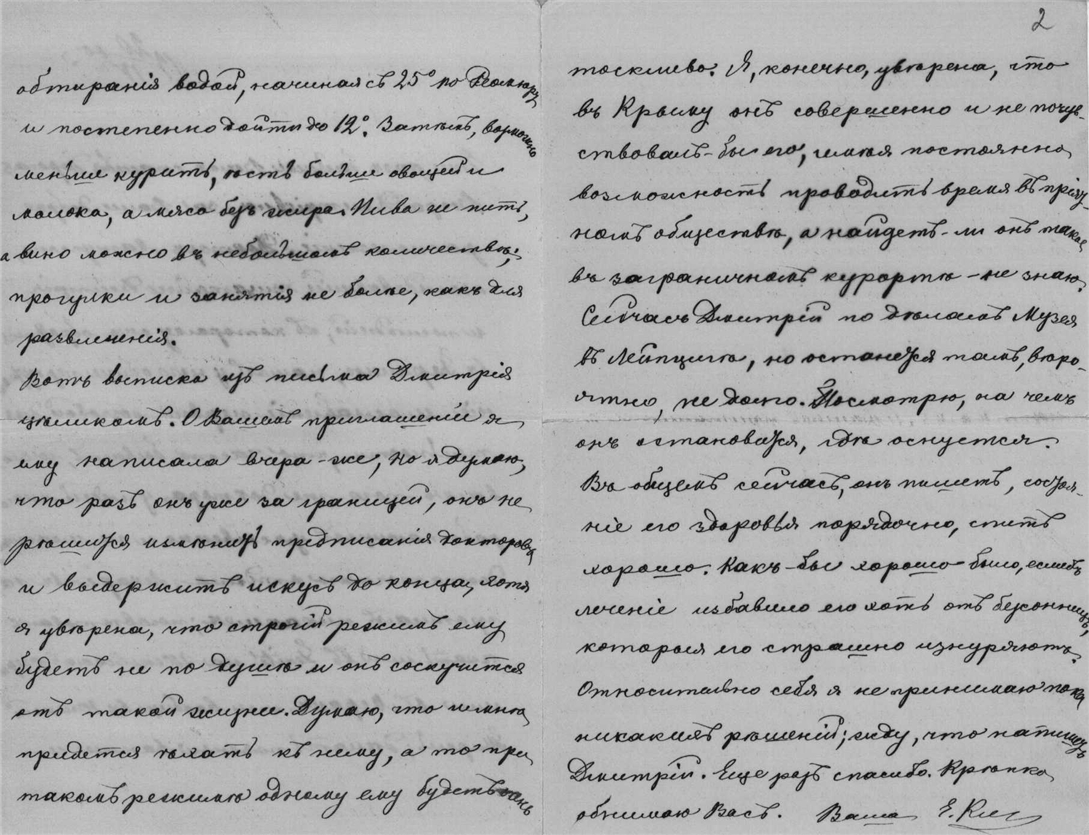 обтиранія водой, начиная съ 25° по Реомюру
и постепенно дойти до 12°. Затѣмъ, возможно
меньше курить, ѣсть больше овощей и
молока, а мясо безъ жира. Пива не пить,
а вино можно въ небольшомъ количествѣ;
прогулки и занятія не болѣе, какъ для
развлеченія.
Вотъ выписка изъ письма Дмитрія
цѣликомъ. О Вашемъ приглашеніи я
ему написала вчера-же, но я думаю,
что разъ онъ уже за границей, онъ не
рѣшится измѣнить предписанія докторовъ
и выдержитъ искусъ до конца, хотя
я увѣрена, что строгій режимъ ему
будетъ не по душѣ и онъ соскучится
отъ такой жизни. Думаю, что и мнѣ
придется ѣхать къ нему, а то при
такомъ режимѣ одному ему будетъ очень
2
тоскливо. Я, конечно, увѣрена, что
въ Крыму онъ совершенно и не почув-
ствовалъ-бы его, имѣя постоянно
возможность проводить время въ пріят-
номъ обществѣ, а найдетъ-ли онъ такое
въ заграничномъ курортѣ - не знаю.
Сейчасъ Дмитрій по дѣламъ Музея
въ Лейпцигѣ, но останется тамъ, вѣро-
ятно, не долго. Посмотрю, на чемъ
онъ остановится, гдѣ оснуется.
Въ общемъ сейчасъ, онъ пишетъ, состоя-
ніе его здоровья порядочно, спитъ
хорошо. Какъ-бы хорошо было, еслибъ
леченіе избавило его хоть отъ безсонницъ,
которыя его страшно изнуряютъ.
Относительно себя я не принимаю пока
никакихъ рѣшеній; жду, что напишетъ
Дмитрій. Еще разъ спасибо. Крѣпко
обнимаю Васъ. Ваша Е.